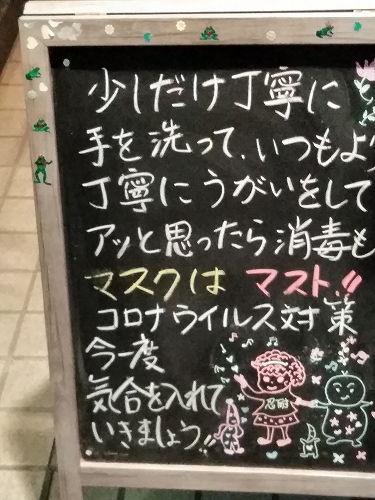 少しだけ丁寧に
手を洗って、いつもより
丁寧にうがいをして
アッと思ったら消毒も
マスクは マスト!!
コロナウイルス対策
今一度
気合を入れて
いきましょう!!